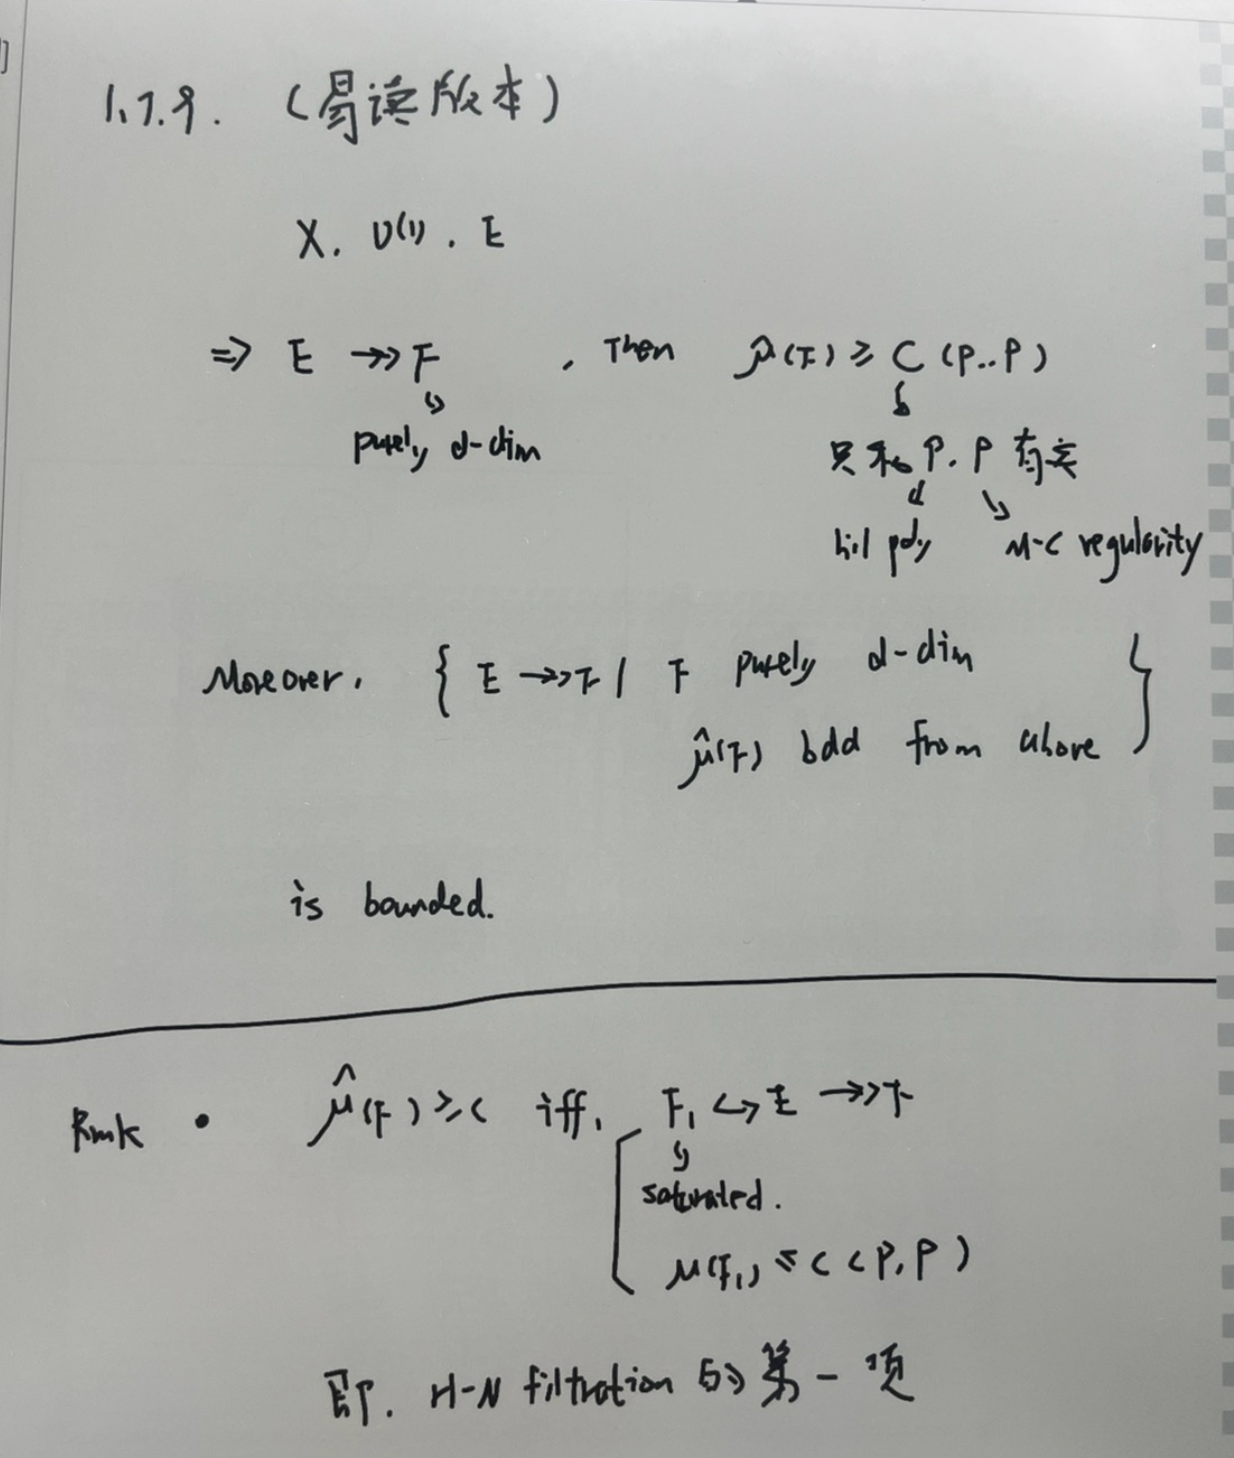 1.7.9. (易读版本)
X. O(1). E
⇒ E ↠ F , Then μ̂(F) ≥ C (P..ρ)
purely d-dim
只和 P. ρ 有关
hil poly M-C regularity
Moreover. { E ↠ F | F purely d-dim
μ̂(F) bdd from above }
is bounded.
Rmk • μ̂(F) ≥ C iff. F₁ ↪ E ↠ F
saturated.
μ(F₁) ≤ C (P, ρ)
即. H-N filtration 的第一项